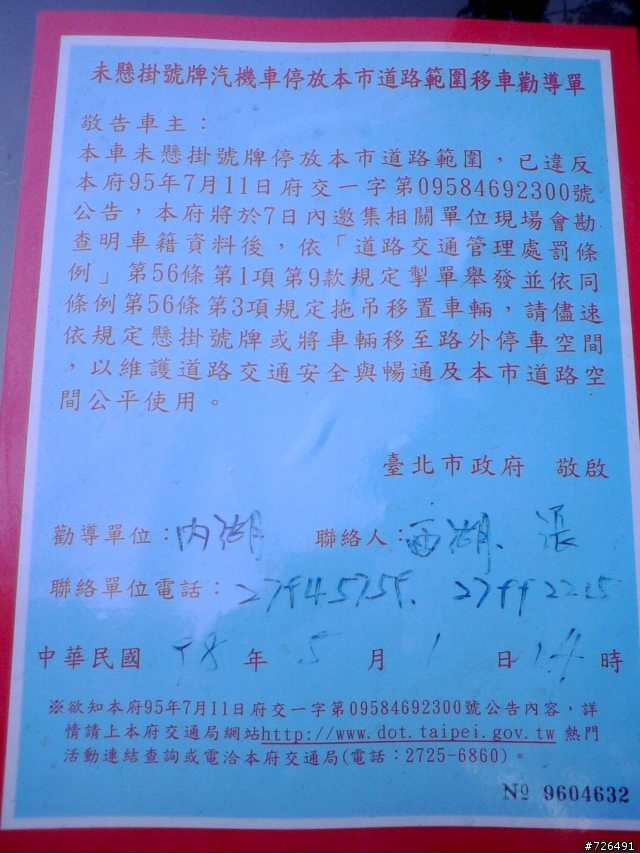 未懸掛號牌汽機車停放本市道路範圍移車勸導單
敬告車主：
本車未懸掛號牌停放本市道路範圍，已違反
本府95年7月11日府交一字第09584692300號
公告，本府將於7日內邀集相關單位現場會勘
查明車籍資料後，依「道路交通管理處罰條
例」第56條第1項第9款規定掣單舉發並依同
條例第56條第3項規定拖吊移置車輛，請儘速
依規定懸掛號牌或將車輛移至路外停車空間
，以維護道路交通安全與暢通及本市道路空
間公平使用。
臺北市政府 敬啟
勸導單位：內湖 聯絡人：西湖、張
聯絡單位電話：27945759.
中華民國 98 年 5 月 1 日 14 時
※欲知本府95年7月11日府交一字第09584692300號公告內容，詳
情請上本府交通局網站http://www.dot.taipei.gov.tw 熱門
活動連結查詢或電洽本府交通局(電話：2725-6860)。
№ 9604632
#726491